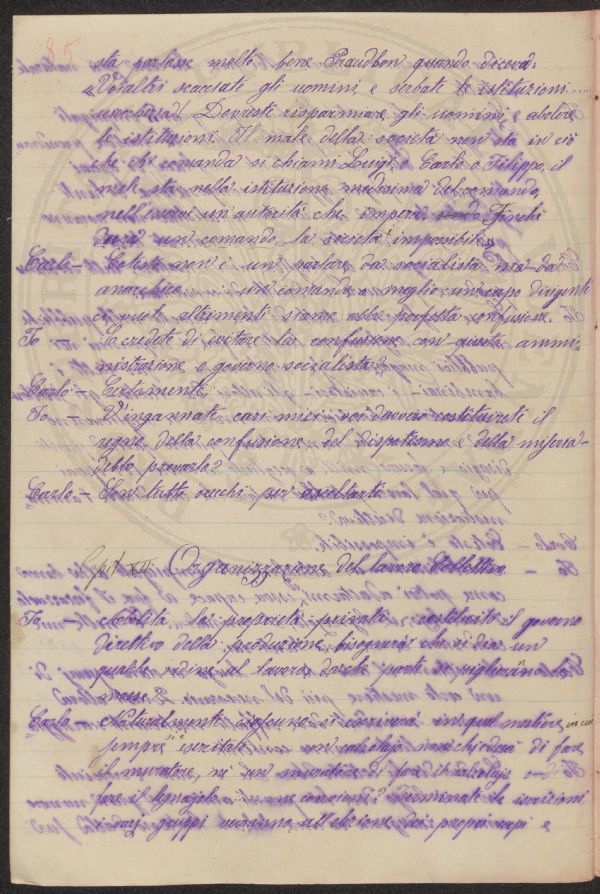 85
sta parlasse molto bene Praudhon quando diceva:
"Voialtri scacciate gli uomini e serbate le istituzioni.....
Dovreste risparmiare gli uomini e abolire
le istituzioni. Il male della società non sta in ciò
che chi comanda si chiami Luigi o Carlo o Filippo, il
male sta nella istituzione medesima del comando,
nell'esservi un'autorità che impera. Finchè
dura un comando la società è impossibile"
Carlo — Cotesto non è un parlare da socialista ma da
anarchico un comando o meglio un capo dirigente
ci vuole altrimenti siamo alla perfetta confusione.
Io — E credete di evitare la confusione con questa ammi-
nistrazione o governo socialista?
Carlo — Certamente.
Io — V'ingannate cari miei voi davvero costituirete il
regno della confusione del dispotismo e della miseria
debbo provarlo?
Carlo — Son tutto orecchi per ascoltarti
Capit XII. Organizzazione del lavoro Collettivo
Io — Abolita la proprietà privata costituito il governo
Direttivo della produzione, bisognerà che si dia un
qualche ordine al lavoro, da che parte si piglieranno le
mosse?
Carlo — Naturalmente ciascuno si inscriverà in quel mestiere in cui
sempre si è esercitato un calzolajo non chiederà di fare
il muratore, nè un muratore di fare il calzolajo o di
fare il legnajolo ne convieni? Terminate le iscrizioni
i varj gruppi verranno all'elezione dei propri capi e